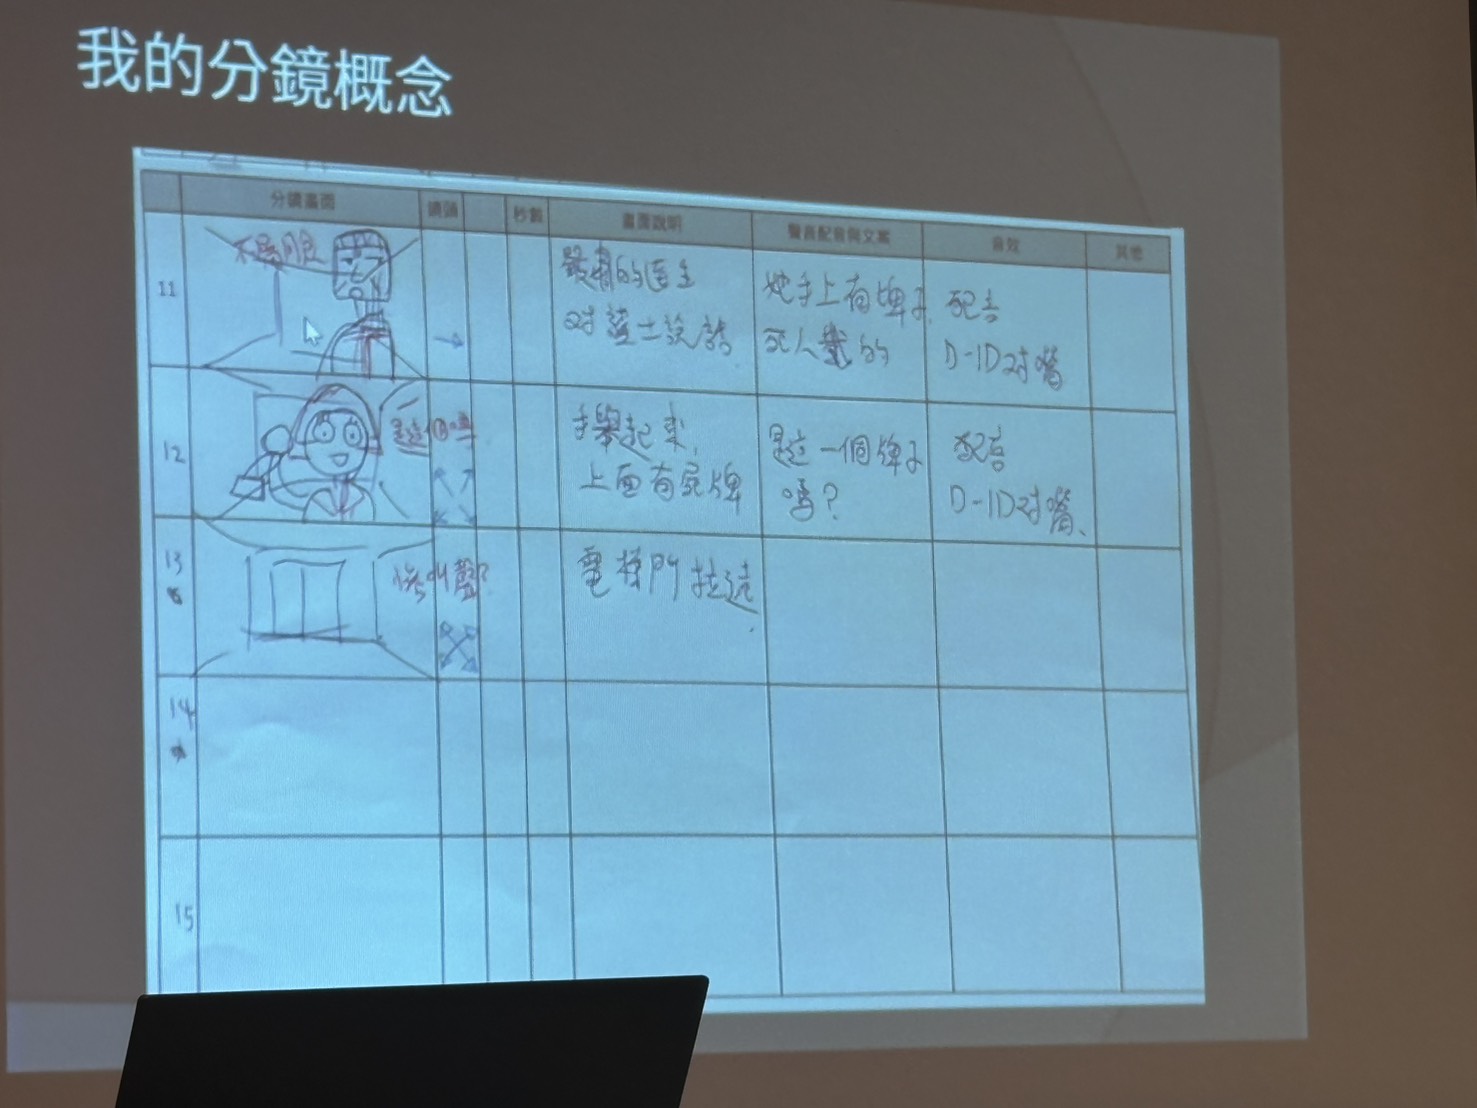 我的分鏡概念
分鏡畫面 鏡頭 秒數 畫面說明 聲音配音與文案 音效 其他
11
嚴肅的医生
对護士說話
她手上有牌子
死人戴的
配音
D-ID对嘴
12
是這個嗎
手舉起來,
上面有屍牌
是這一個牌子
嗎?
配音
D-ID对嘴、
13
慘叫聲?
電梯門拉遠
14
15